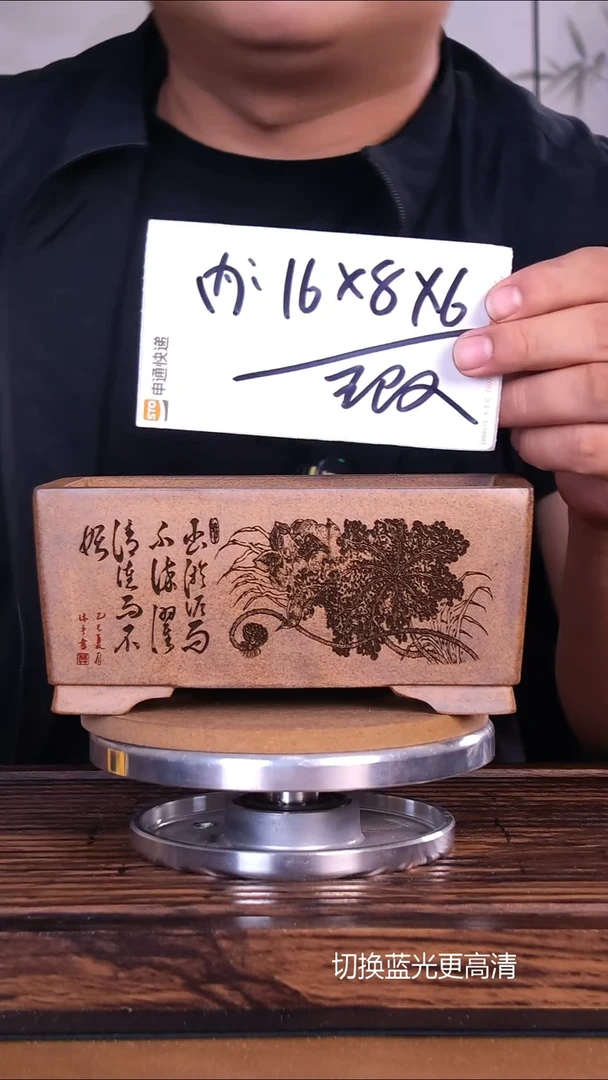 内: 16×8×6
STO 申通快递
出淤泥而
不染濯
清涟而不
妖
乙巳夏月
切换蓝光更高清